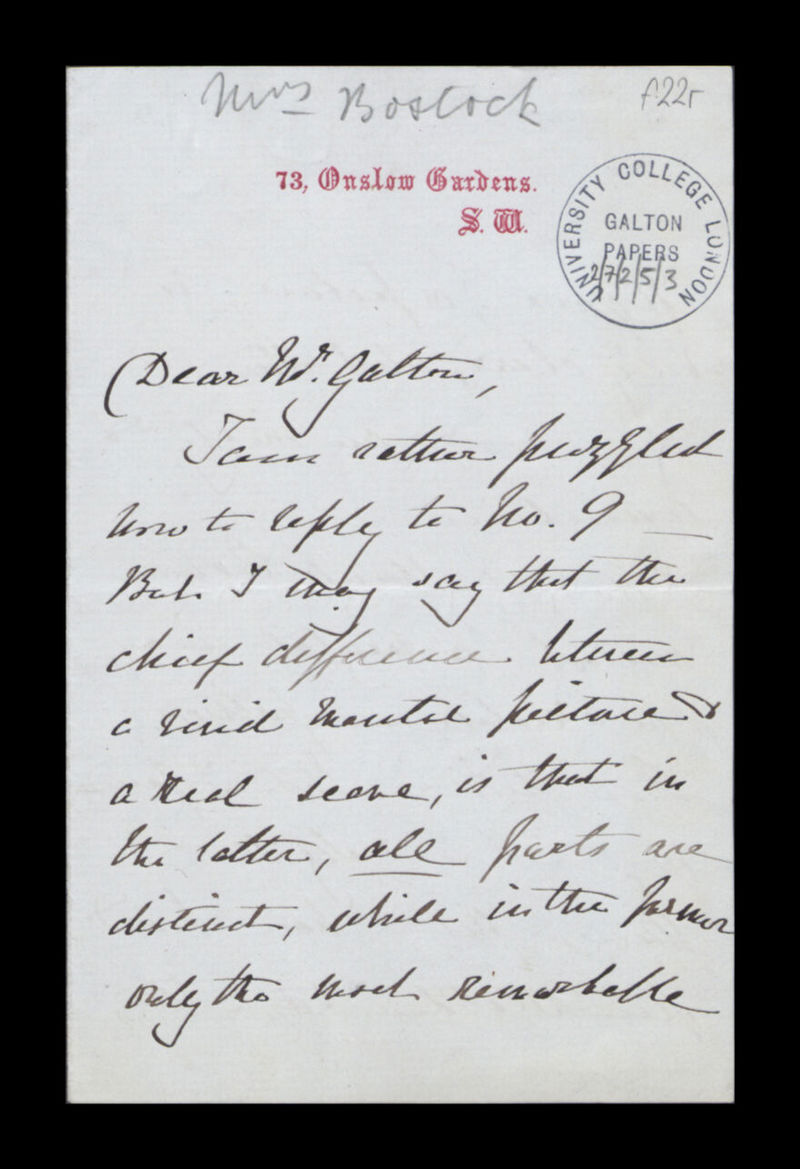 Mrs Bostock
f22r
73, Onslow Gardens.
S. W.
UNIVERSITY COLLEGE LONDON
GALTON
PAPERS
2/7/2/5/3
Dear Mr. Galton,
I am rather puzzled
how to reply to No. 9 —
But I may say that the
chief difference between
a vivid mental picture &
a real scene, is that in
the latter, all parts are
distinct, while in the former
only the most remarkable